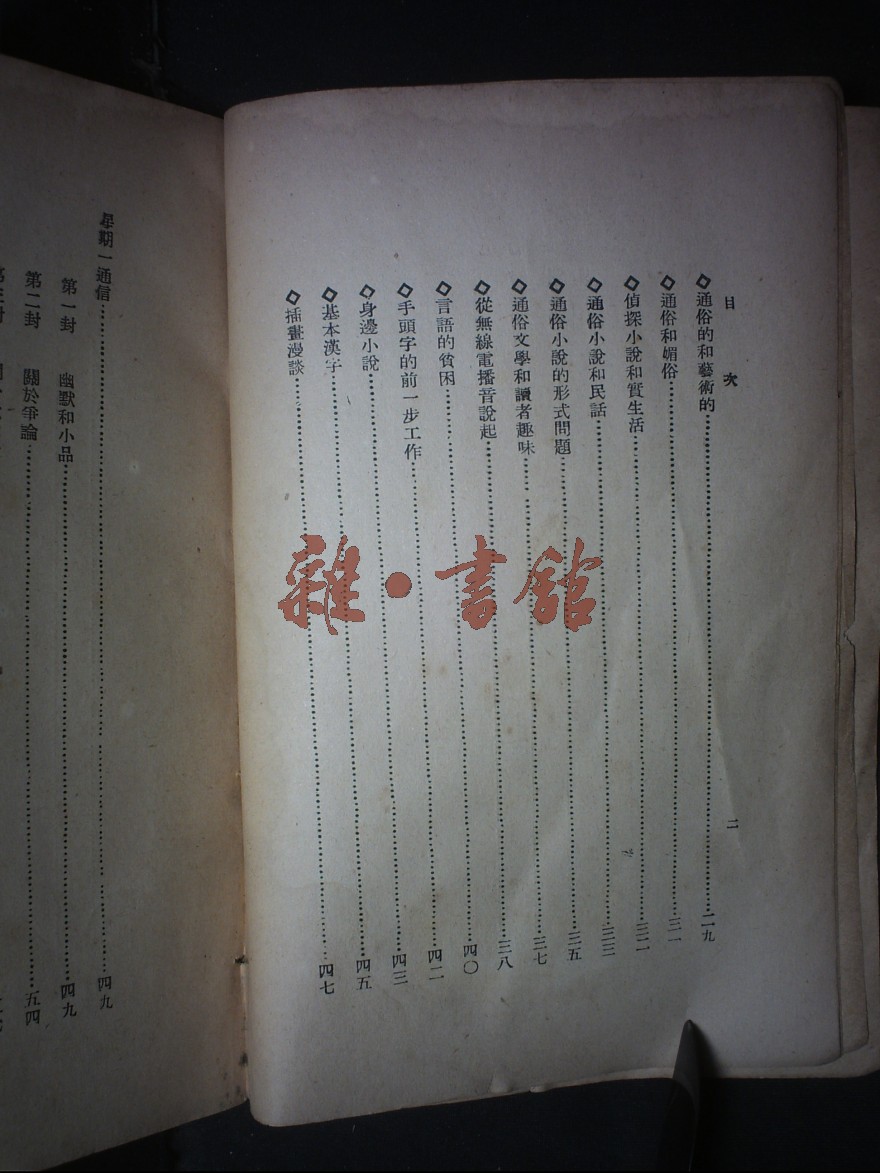 目次 二
◇通俗的和藝術的……二九
◇通俗和媚俗……三一
◇偵探小說和實生活……三二
◇通俗小說和民話……三三
◇通俗小說的形式問題……三五
◇通俗文學和讀者趣味……三七
◇從無線電播音說起……三八
◇言語的貧困……四〇
◇手頭字的前一步工作……四二
◇身邊小說……四三
◇基本漢字……四五
◇插畫漫談……四七
星期一通信……四九
第一封 幽默和小品……四九
第二封 關於爭論……五四
雜·書館